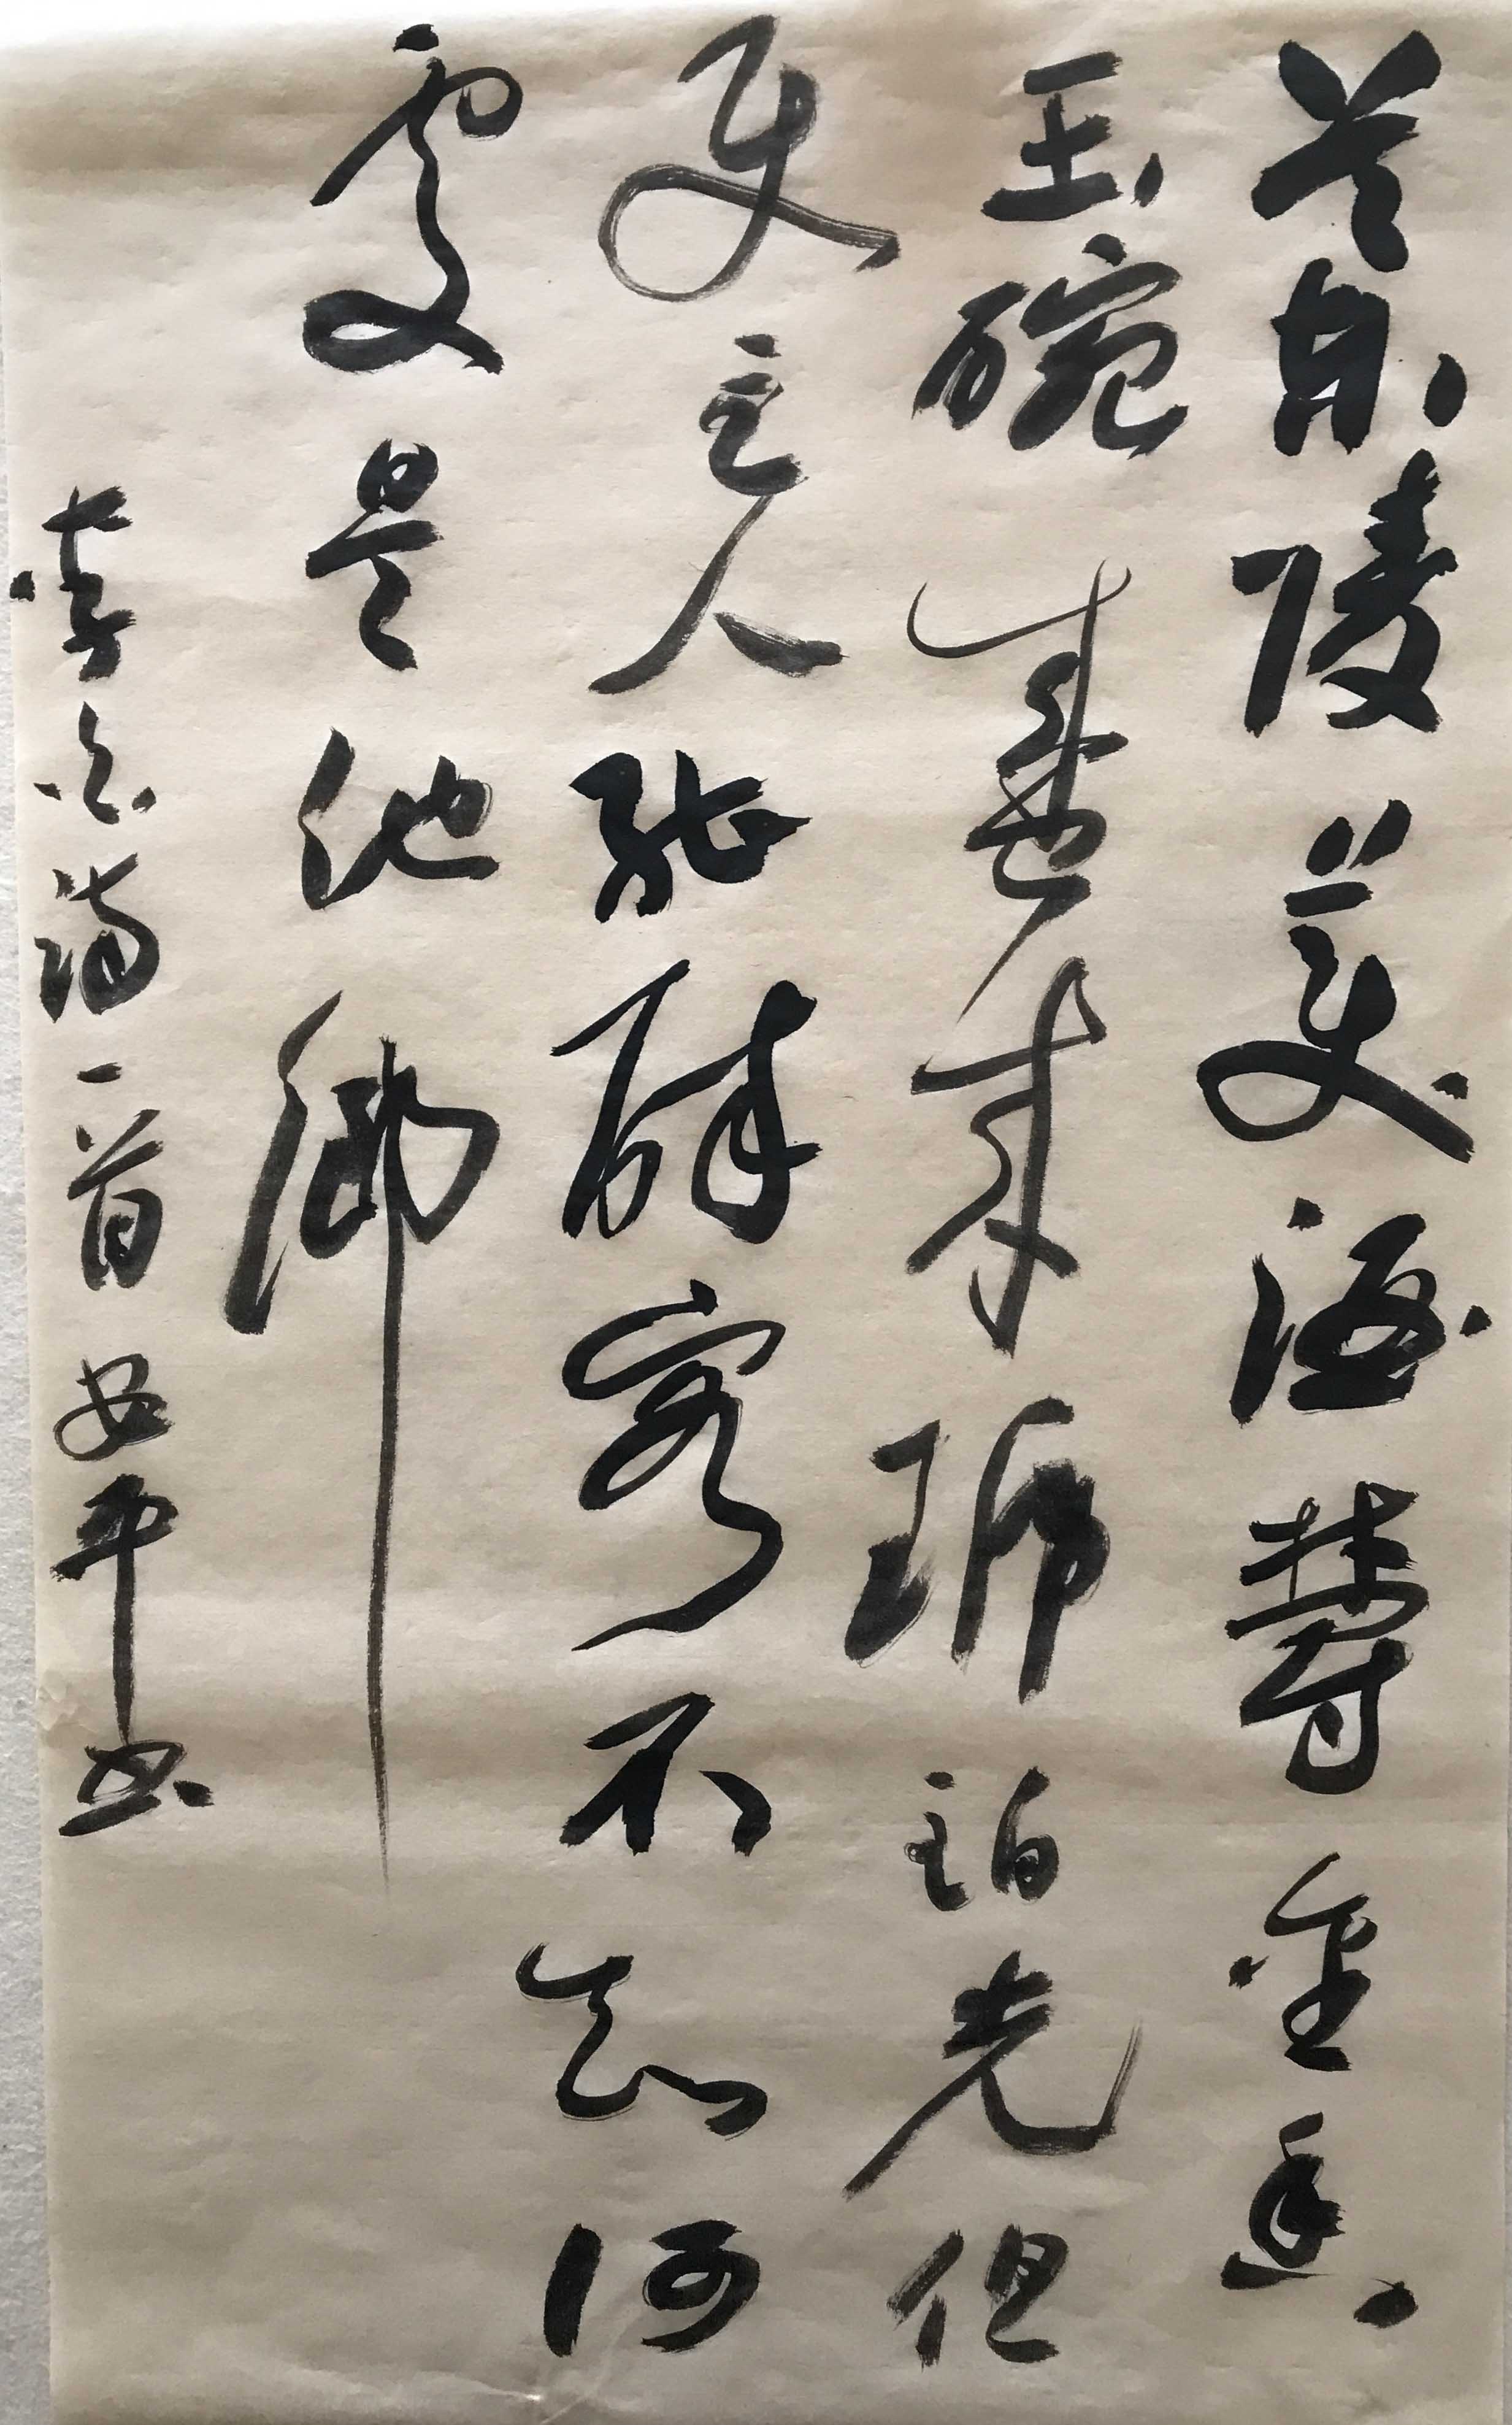 蘭陵美酒鬱金香
玉碗盛来琥珀光但
使主人能醉客不知何
處是他鄉
李白詩一首 安平书